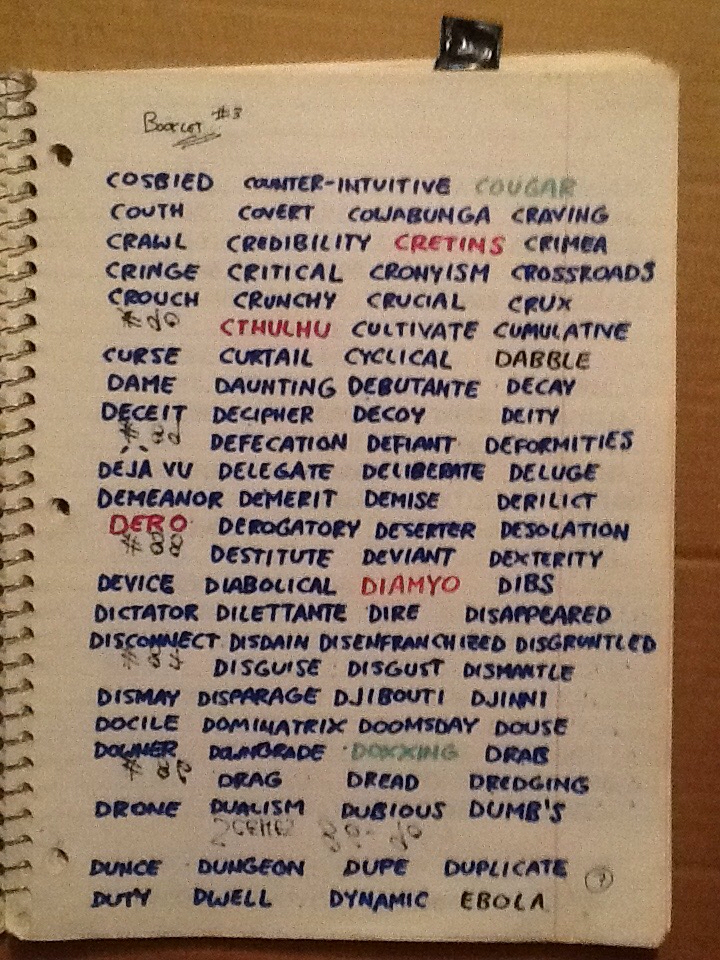 Booklet #3
COSBIED COUNTER-INTUITIVE COUGAR
COUTH COVERT COWABUNGA CRAVING
CRAWL CREDIBILITY CRETINS CRIMEA
CRINGE CRITICAL CRONYISM CROSSROADS
CROUCH CRUNCHY CRUCIAL CRUX
CTHULHU CULTIVATE CUMULATIVE
CURSE CURTAIL CYCLICAL DABBLE
DAME DAUNTING DEBUTANTE DECAY
DECEIT DECIPHER DECOY DEITY
DEFECATION DEFIANT DEFORMITIES
DEJA VU DELEGATE DELIBERATE DELUGE
DEMEANOR DEMERIT DEMISE DERILICT
DERO DEROGATORY DESERTER DESOLATION
DESTITUTE DEVIANT DEXTERITY
DEVICE DIABOLICAL DIAMYO DIBS
DICTATOR DILETTANTE DIRE DISAPPEARED
DISCONNECT DISDAIN DISENFRANCHIZED DISGRUNTLED
DISGUISE DISGUST DISMANTLE
DISMAY DISPARAGE DJIBOUTI DJINNI
DOCILE DOMINATRIX DOOMSDAY DOUSE
DOWNER DOWNGRADE DOXXING DRAB
DRAG DREAD DREDGING
DRONE DUALISM DUBIOUS DUMB'S
DUNCE DUNGEON DUPE DUPLICATE
DUTY DWELL DYNAMIC EBOLA